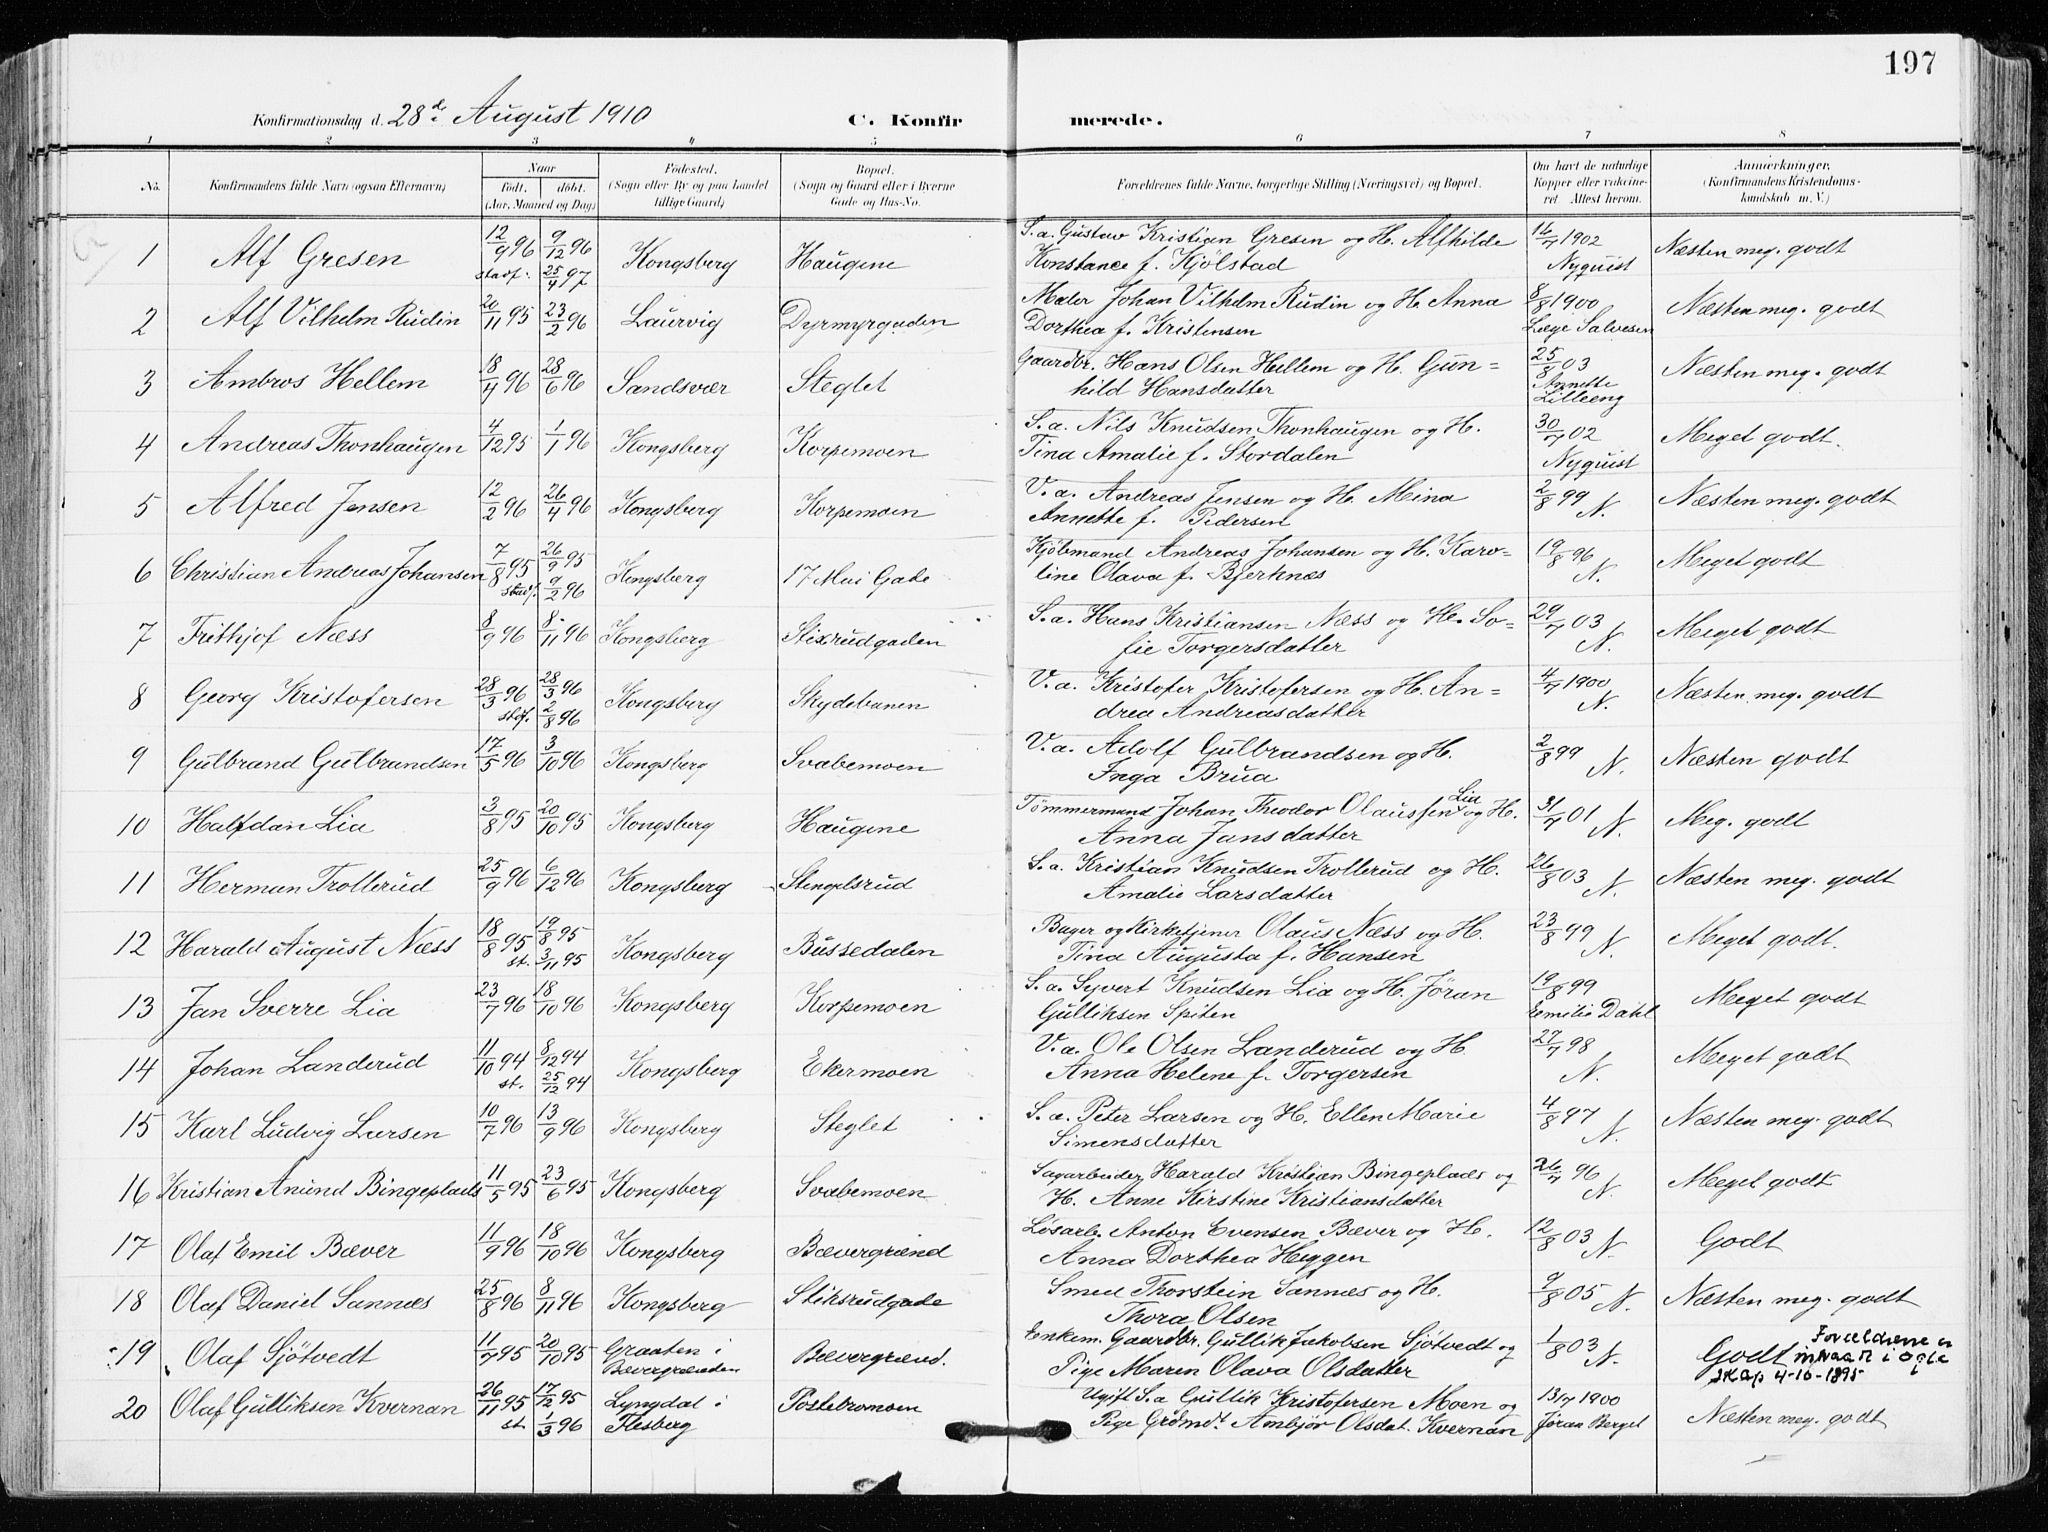 197
Konfirmationsdag d. 28de August 1910 C. Konfirmerede.
1 2 3 4 5 6 7 8
No. Konfirmandens fulde Navn (ogsaa Efternavn) Naar födt. döbt. (Aar, Maaned og Dag) Födested. (Sogn eller By og paa Landet tillige Gaard) Bopæl. (Sogn og Gaard eller i Byerne Gade og Hus-No. Forældrenes fulde Navne, borgerlige Stilling (Næringsvei) og Bopæl. Om havt de naturlige Kopper eller vakcineret Attest herom. Anmærkninger, (Konfirmandens Kristendomskundskab m. V.)
1 Alf Gresen 12/9 96 stadf. 9/12 96 25/4 97 Kongsberg Haugene S. a. Gustav Kristian Gresen og H. Alfhilde
Konstance f. Kjölstad 16/7 1902 Nyquist Næsten meg. godt
2 Alf Vilhelm Rudin 20/11 95 23/2 96 Laurvig Dyrmyrgaden Maler Johan Vilhelm Rudin og H. Anna
Dorthea f. Kristensen 8/8 1900 Læge Salvesen Næsten meg. godt
3 Ambros Hellem 18/4 96 28/6 96 Sandsvær Steglet Gaardbr. Hans Olsen Hellem og H. Gun=
hild Hansdatter 25/8 03 Annette Lilleeng Næsten meg. godt
4 Andreas Thonhaugen 4/12 95 1/1 96 Kongsberg Korpemoen S. a. Nils Knudsen Thonhaugen og H.
Tina Amalie f. Stordalen 30/7 02 Nyquist Meget godt.
5 Alfred Jensen 12/2 96 26/4 96 Kongsberg Korpemoen V. a. Andreas Jensen og H. Mina
Annette f. Pedersen 2/8 99 N. Næsten meg. godt
6 Christian Andreas Johansen 7/8 95 stadf. 26/9 95 9/2 96 Kongsberg 17 Mai Gade Kjöbmand Andreas Johansen og H. Karo=
line Olava f. Bjerknæs 19/8 96 N. Meget godt
7 Frithjof Næss 8/9 96 8/11 96 Kongsberg Stixrudgaden S. a. Hans Kristiansen Næss og H. So=
fie Torgersdatter 29/7 03 N. Meget godt
8 Georg Kristofersen 28/3 96 stf. 28/3 96 2/8 96 Kongsberg Skydebanen V. a. Kristofer Kristofersen og H. An=
drea Andreasdatter 4/7 1900 N. Næsten meg. godt
9 Gulbrand Gulbrandsen 17/5 96 3/10 96 Kongsberg Svabemoen V. a. Adolf Gulbrandsen og H.
Inga Brua 2/8 99 N. Næsten godt
10 Halfdan Lia 3/8 95 20/10 95 Kongsberg Haugene Tömmermand Johan Theodor Olaussen Lia og H.
Anna Jansdatter 31/7 01 N. Meg. godt
11 Herman Trollerud 25/9 96 6/12 96 Kongsberg Stengelsrud S. a. Kristian Knudsen Trollerud og H.
Amalie Larsdatter 26/8 03 N. Næsten meg. godt
12 Harald August Næss 18/8 95 st. 19/8 95 3/11 95 Kongsberg Bussedalen Bager og Kirketjener Olaus Næss og H.
Tina Augusta f. Hansen 23/8 99 N. Meget godt.
13 Jan Sverre Lia 23/7 96 18/10 96 Kongsberg Korpemoen S. a. Syvert Knudsen Lia og H. Jöran
Gulliksen Spiten 19/8 99 Emilie Dahl Meget godt
14 Johan Landerud 11/10 94 st. 8/12 94 25/12 94 Kongsberg Ekermoen V. a. Ole Olsen Landerud og H
Anna Helene f. Torgersen 27/7 98 N. Meget godt
15 Karl Ludvig Larsen 10/7 96 13/9 96 Kongsberg Steglet S. a. Peter Larsen og H. Ellen Marie
Simensdatter 4/8 97 N. Næsten meg. godt
16 Kristian Anund Bingeplads 11/5 95 23/6 95 Kongsberg Svabemoen Sagarbeider Harald Kristian Bingeplads og
H. Anne Kirstine Kristiansdatter 26/7 96 N. Meget godt
17 Olaf Emil Bæver 11/9 96 18/10 96 Kongsberg Bævergrænd Løsarb. Anton Evensen Bæver og H.
Anna Dorthea Heggen 12/8 03 N. Godt
18 Olaf Daniel Sannæs 25/8 96 8/11 96 Kongsberg Stiksrudgade Smed Thorstein Sannæs og H.
Thora Olsen 9/8 05 N. Næsten meg. godt
19 Olaf Sjötvedt 11/7 95 20/10 95 Graaten i Bævergrænden Bævergrænd. Enkem. Gaardbr. Gullik Jakobsen Sjötvedt og
Pige Maren Olava Olsdatter 1/8 03 N. Godt Forældrene er
indgaat i ægte
skap 4-10-1895
20 Olaf Gulliksen Kvernan 26/11 95 st. 17/12 95 1/3 96 Lyngdal i Flesberg Postebromoen Ugift S. a Gullik Kristofersen Moen og
Pige Grömdt Ambjør Olsdat. Kvernan 13/7 1900 Jöran Berget Næsten meg. godt